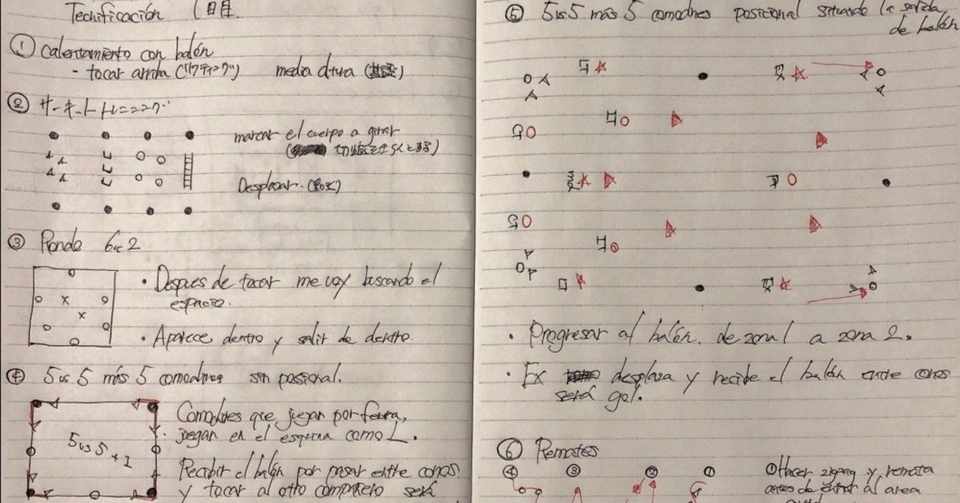 Tecnificación 1日目.
① Calentamiento con balón
- tocar arriba (リフティング) media altura
② サーキットトレーニング
marcar el cuerpo a girar
Desplazar.
③ Rondo 6vs2
・Despues de tocar me voy buscando el
espacio.
・Aparece dentro y salir de dentro
④ 5vs5 más 5 comodines sin posicional.
5vs5+1
Comodines que juegan por fuera,
juegan en el esquina como L.
Recibir el balón por pasar entre conos
y tocar al otro compañero será
⑤ 5vs5 más 5 comodines posicional situando la salida
de balón
・Progresar al balón. de zona 1 a zona 2.
・Ex desplaza y recibe el balón entre conos
será gol.
⑥ Remates
④ ③ ② ①
①Hacer zigzag y remata
antes de entrar al area